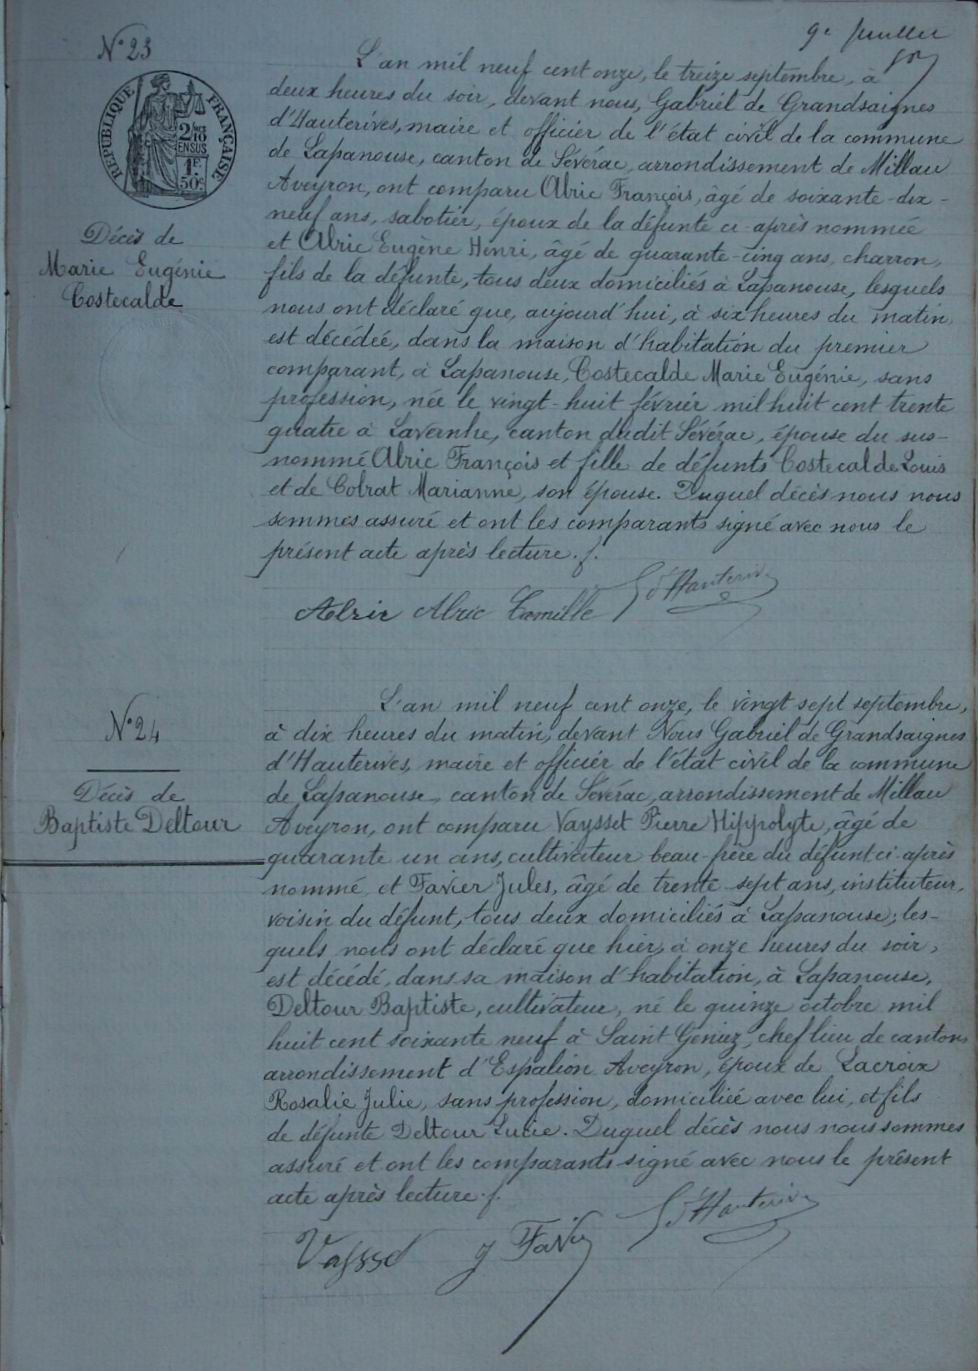 9e feuillet
N° 23
RÉPUBLIQUE FRANÇAISE
2/10 EN SUS
1F.50c
Décès de
Marie Eugénie
Costecalde
L'an mil neuf cent onze, le treize septembre, à
deux heures du soir, devant nous, Gabriel de Grandsaignes
d'Hauterives, maire et officier de l'état civil de la commune
de Lapanouse, canton de Sévérac, arrondissement de Millau
Aveyron, ont comparu Alric François, âgé de soixante-dix-
neuf ans, sabotier, époux de la défunte ci-après nommée
et Alric Eugène Henri, âgé de quarante-cinq ans, charron,
fils de la défunte, tous deux domiciliés à Lapanouse, lesquels
nous ont déclaré que, aujourd'hui, à six heures du matin
est décédée, dans la maison d'habitation du premier
comparant, à Lapanouse, Costecalde Marie Eugénie, sans
profession, née le vingt-huit février mil huit cent trente
quatre à Lavernhe, canton dudit Sévérac, épouse du sus-
nommé Alric François et fille de défunts Costecalde Louis
et de Colrat Marianne, son épouse. Duquel décès nous nous
sommes assuré et ont les comparants signé avec nous le
présent acte après lecture.
Alric Alric Camille G d'Hauterives
N° 24
Décès de
Baptiste Deltour
L'an mil neuf cent onze, le vingt sept septembre,
à dix heures du matin, devant Nous Gabriel de Grandsaignes
d'Hauterives, maire et officier de l'état civil de la commune
de Lapanouse, canton de Sévérac, arrondissement de Millau
Aveyron, ont comparu Vaysset Pierre Hippolyte, âgé de
quarante un ans, cultivateur beau-frère du défunt ci-après
nommé et Favier Jules, âgé de trente-sept ans, instituteur,
voisin du défunt, tous deux domiciliés à Lapanouse; les-
quels nous ont déclaré que hier, à onze heures du soir,
est décédé, dans sa maison d'habitation, à Lapanouse,
Deltour Baptiste, cultivateur, né le quinze octobre mil
huit cent soixante neuf à Saint Geniez, chef lieu de canton,
arrondissement d'Espalion Aveyron, époux de Lacroix
Rosalie Julie, sans profession, domiciliée avec lui, et fils
de défunte Deltour Lucie. Duquel décès nous nous sommes
assuré et ont les comparants signé avec nous le présent
acte après lecture.
Vaysset J Favier G d'Hauterives